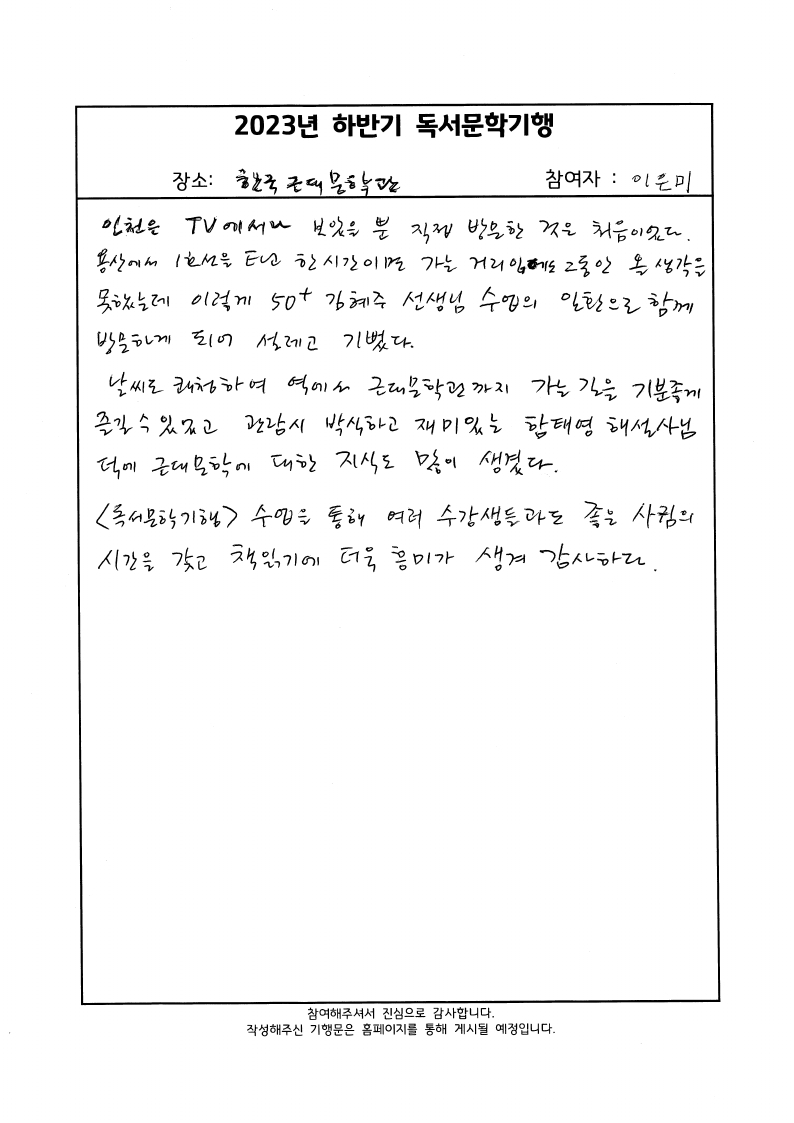 2023년 하반기 독서문학기행
장소: 한국근대문학관 참여자 : 이은미
인천은 TV에서나 보았을 뿐 직접 방문한 것은 처음이었다.
용산에서 1호선을 타고 한시간이면 가는 거리임에도 그동안 올 생각을
못했는데 이렇게 50+ 김혜주 선생님 수업의 일환으로 함께
방문하게 되어 설레고 기뻤다.
날씨도 쾌청하여 역에서 근대문학관까지 가는 길을 기분좋게
즐길 수 있었고 관람시 박식하고 재미있는 함태영 해설사님
덕에 근대문학에 대한 지식도 많이 생겼다.
<독서문학기행> 수업을 통해 여러 수강생들과도 좋은 사귐의
시간을 갖고 책읽기에 더욱 흥미가 생겨 감사하다.
참여해주셔서 진심으로 감사합니다.
작성해주신 기행문은 홈페이지를 통해 게시될 예정입니다.